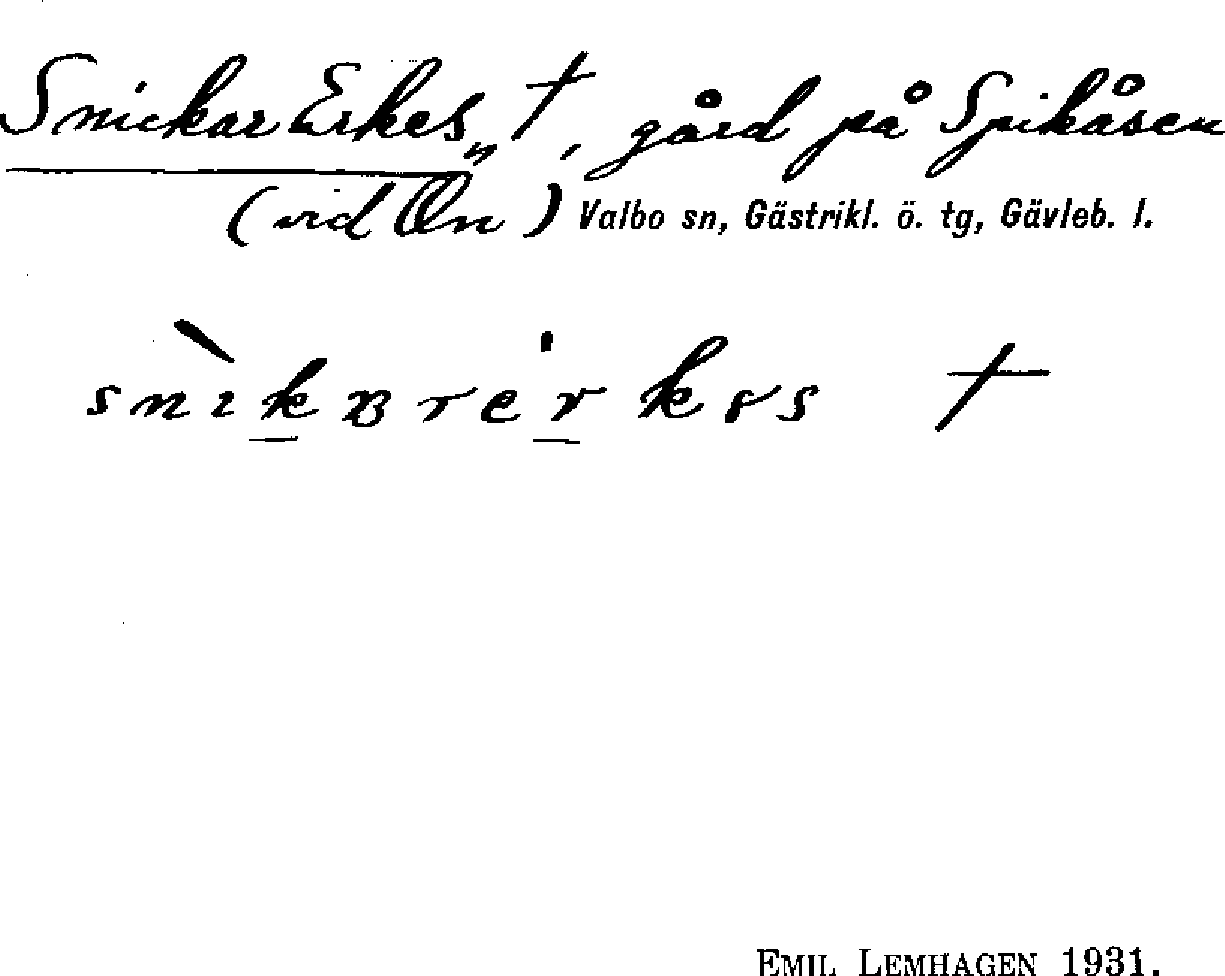 Snickar Erkes „ †, gård på Spikåsen
(vid Ön) Valbo sn, Gästrikl. ö. tg, Gävleb. l.
snìkɐre'rkɤs †
EMIL LEMHAGEN 1931.